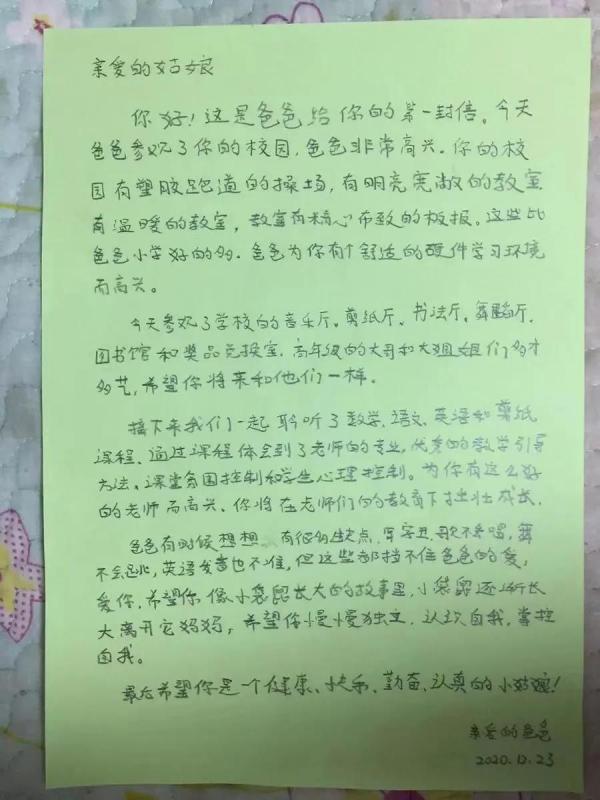 亲爱的姑娘
你好！这是爸爸给你的第一封信。今天
爸爸参观了你的校园，爸爸非常高兴。你的校
园有塑胶跑道的操场，有明亮宽敞的教室
有温暖的教室，教室有精心布致的板报。这些比
爸爸小学好的多。爸爸为你有个舒适的硬件学习环境
而高兴。
今天参观了学校的音乐厅、剪纸厅、书法厅、舞蹈厅、
图书馆和奖品兑换室，高年级的大哥和大姐姐们多才
多艺，希望你将来和他们一样。
接下来我们一起聆听了数学、语文、英语和剪纸
课程、通过课程体会到了老师的专业，优秀的教学引导
方法、课堂氛围控制和学生心理控制。为你有这么好
的老师而高兴，你将在老师们的教育下茁壮成长。
爸爸有时候想想 有很多缺点，写字丑，歌不会唱，舞
不会跳，英语发音也不准，但这些都挡不住爸爸的爱，
爱你，希望你像小袋鼠长大的故事里，小袋鼠逐渐长
大离开它妈妈，希望你慢慢独立，认识自我，掌控
自我。
最后希望你是一个健康、快乐、勤奋、认真的小姑娘！
亲爱的爸爸
2020.12.23